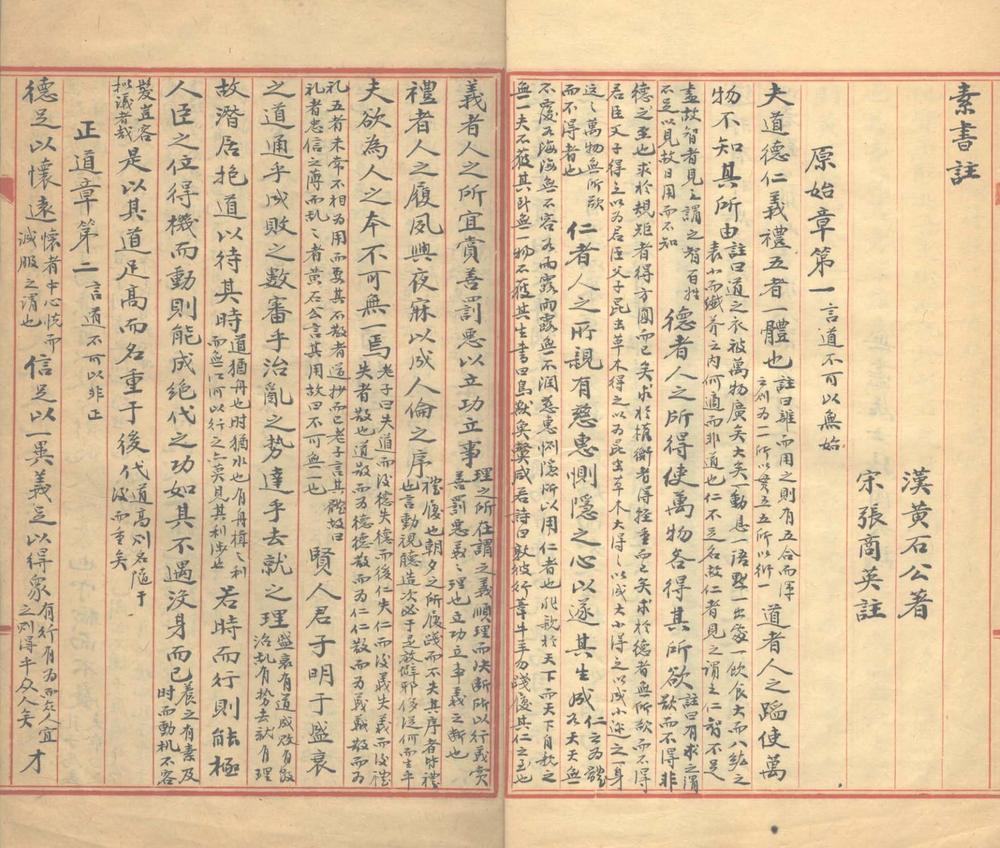 素書註
漢黄石公著
宋張商英註
原始章第一 言道不可以無始
夫道德仁義禮五者一體也 註曰離而用之則有五合而渾之則為一所以貫五五所以衍一 道者人之蹈使萬
物不知其所由 註曰道之衣被萬物廣矣大矣一動息一語默一出處一飲食大而八紘之表小而纖芥之内何適而非道也仁不足名故仁者見之謂之仁智不足
盡故智者見之謂之智百姓不足以見故日用而不知 德者人之所得使萬物各得其所欲 註曰有求之謂欲欲而不得非
德之至也求於規矩者得方圓而已矣求於權衡者得輕重而已矣求於德者無所欲而不得
君臣父子得之以為君臣父子昆虫草木得之以為昆虫草木大得之以成大小得之以成小迩之一身
之萬物無所欲而不得者也 仁者人之所親有慈惠惻隱之心以遂其生成 仁之為體如天天無
不覆如海海無不容如雨露雨露無不潤慈惠惻隱所以用仁者也非欲於天下而天下自親之
無一夫不獲其所無一物不獲其生書曰鳥獸魚鱉咸若詩曰敦彼行葦牛羊勿踐履其仁之至也
義者人之所宜賞善罰惡以立功立事 理之所在謂之義順理而决斷所以行義賞善罰惡義之理也立功立事義之斷也
禮者人之履夙興夜寐以成人倫之序 禮履也朝夕之所履踐而不失其序者皆禮也言動視聽造次必于是放僻邪侈從何而生乎
夫欲為人之本不可無一焉 老子曰失道而後德失德而後仁失仁而後義失義而後禮失者散也道散而為德德散而為仁仁散而為義義散而為
禮五者未常不相為用而要其不散者道妙而已老子言其體故曰禮者忠信之薄而亂之者黃石公言其用故曰不可無一也 賢人君子明于盛衰
之道通乎成敗之數審乎治亂之勢達乎去就之理 盛衰有道成敗有數治亂有勢去就有理
故潛居抱道以待其時 道猶舟也時猶水也有舟楫之利而無江河以行之亦莫見其利涉也 若時而行則能極
人臣之位得機而動則能成絶代之功如其不遇沒身而已 養之有素及時而動机不容
髮豈容擬議者哉 是以其道足高而名重于後代 道高則名隨于後而重矣
正道章第二 言道不可以非正
德足以懷遠 懷者中心悦而誠服之謂也 信足以一異義足以得衆 有行有為而众人宜之則得乎众人矣 才